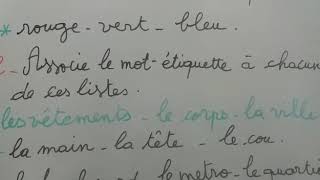 * rouge - vert - bleu.
- Associe le mot-étiquette à chacun
de ces listes.
les vêtements - le corps - la ville
- la main - la tête - le cou.
le metro - le quartie